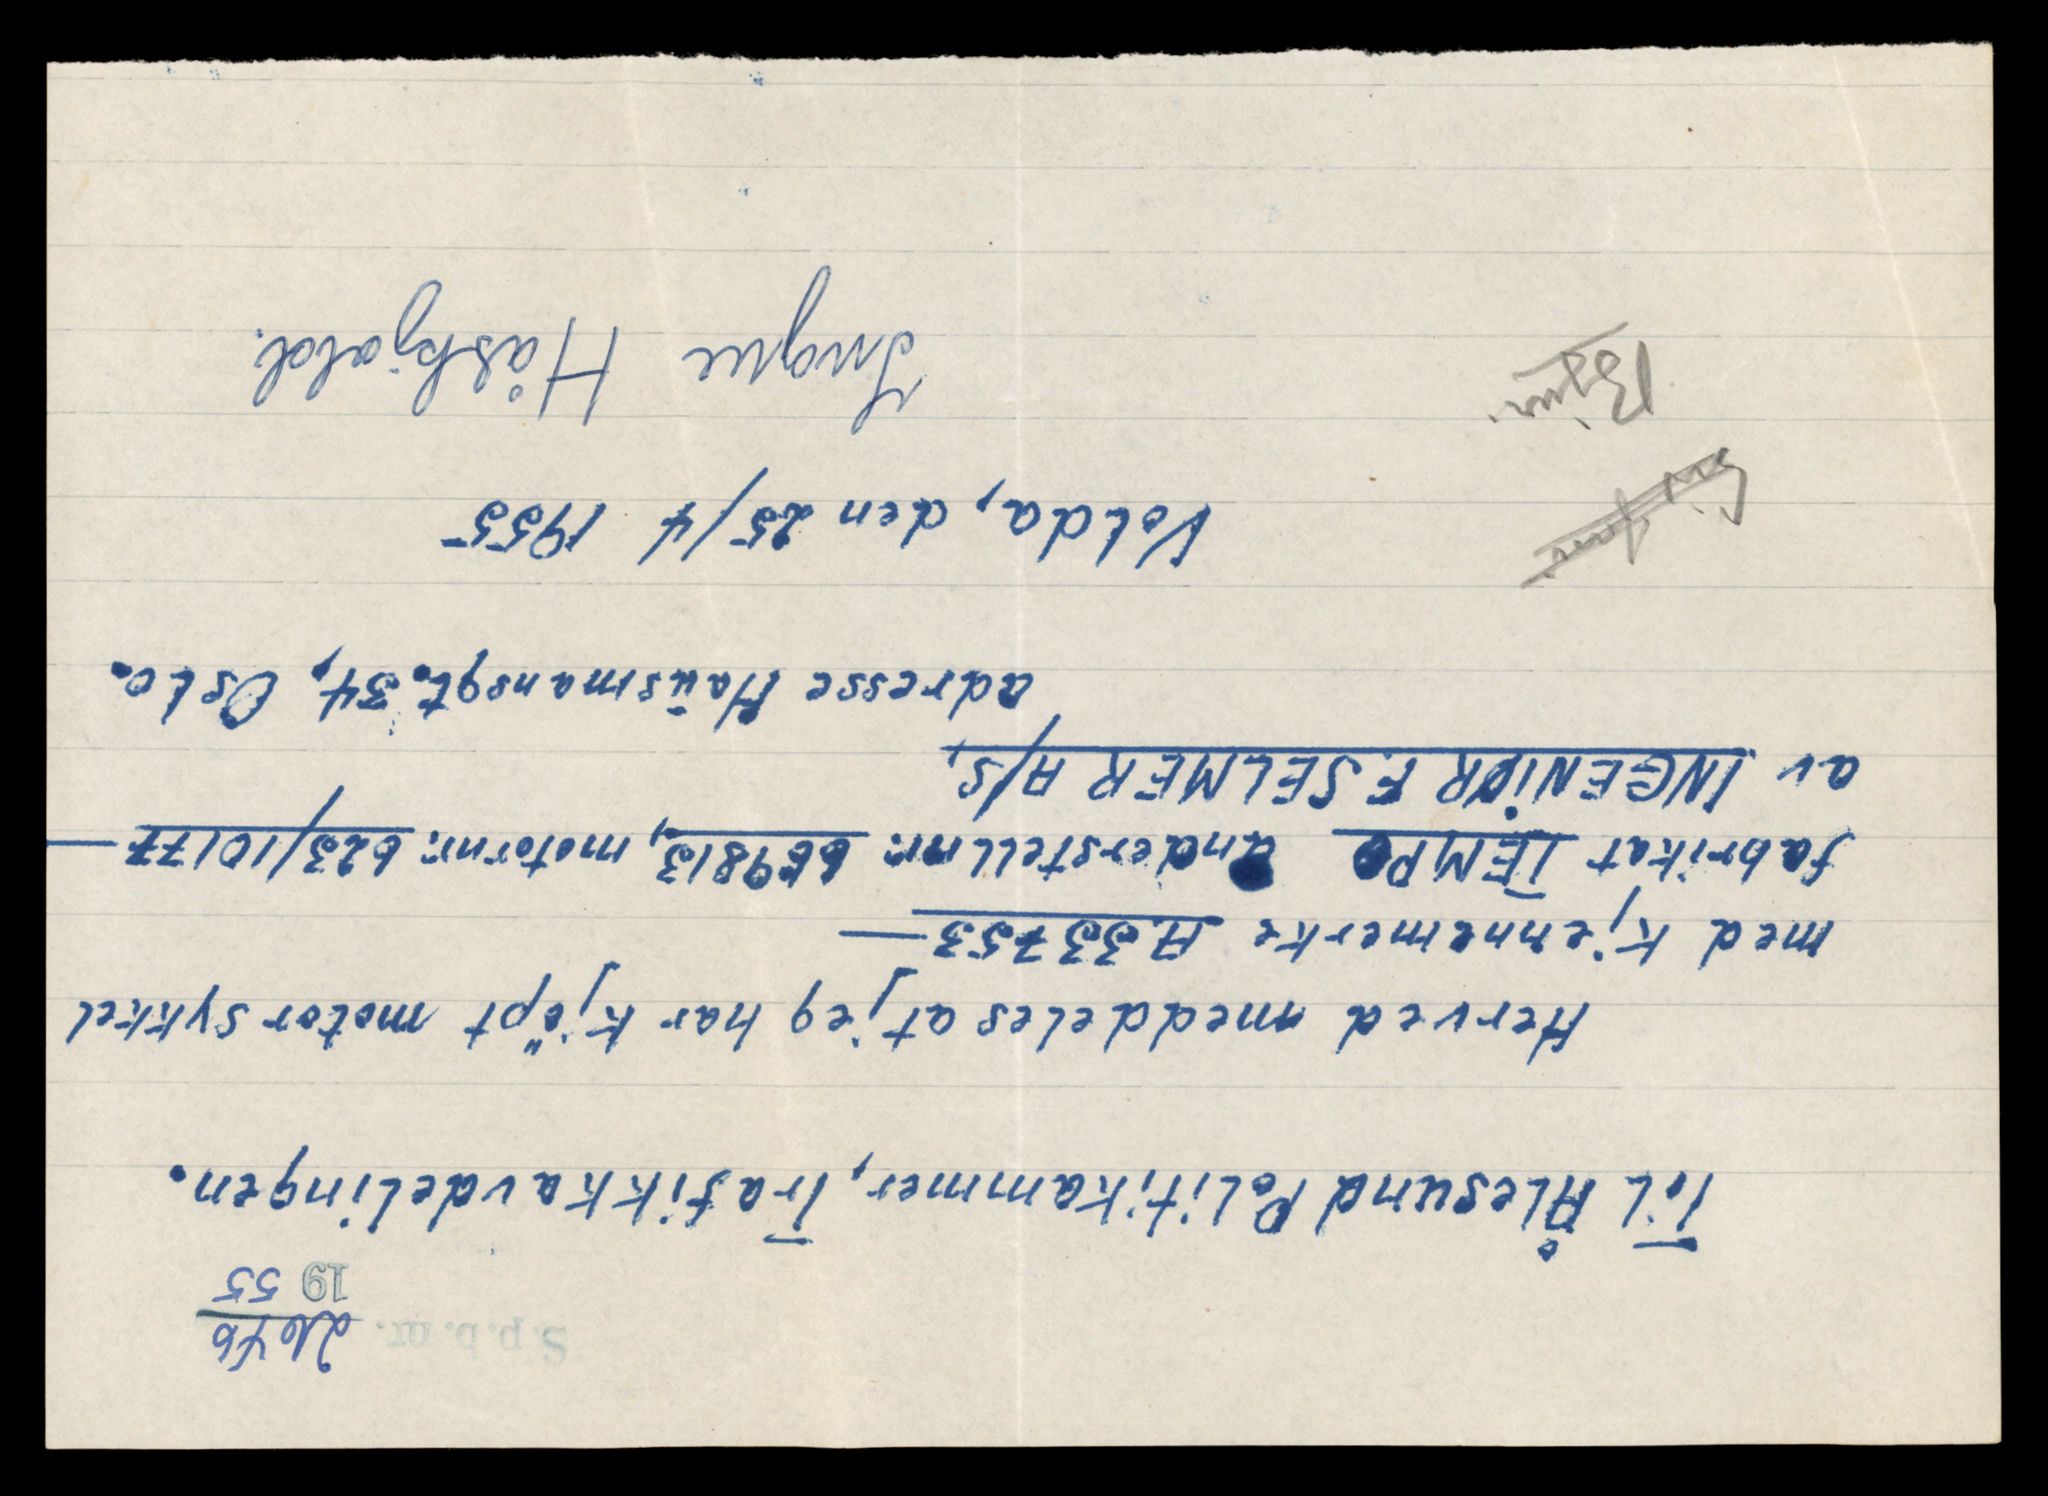 S.p.b. nr. 2646
19 55
Til Ålesund Politikammer, Trafikkavdelingen.
Herved meddeles at jeg har kjöpt motorsykkel
med kjennemerke A. 33753 —
fabrikat TEMPO understellnr. 669813, motornr. 623/10177 —
av INGENIØR F. SELMER A/S,
adresse Hausmansgt. 34, Oslo.
Volda, den 25/4 1955
Ingve Håskjold.